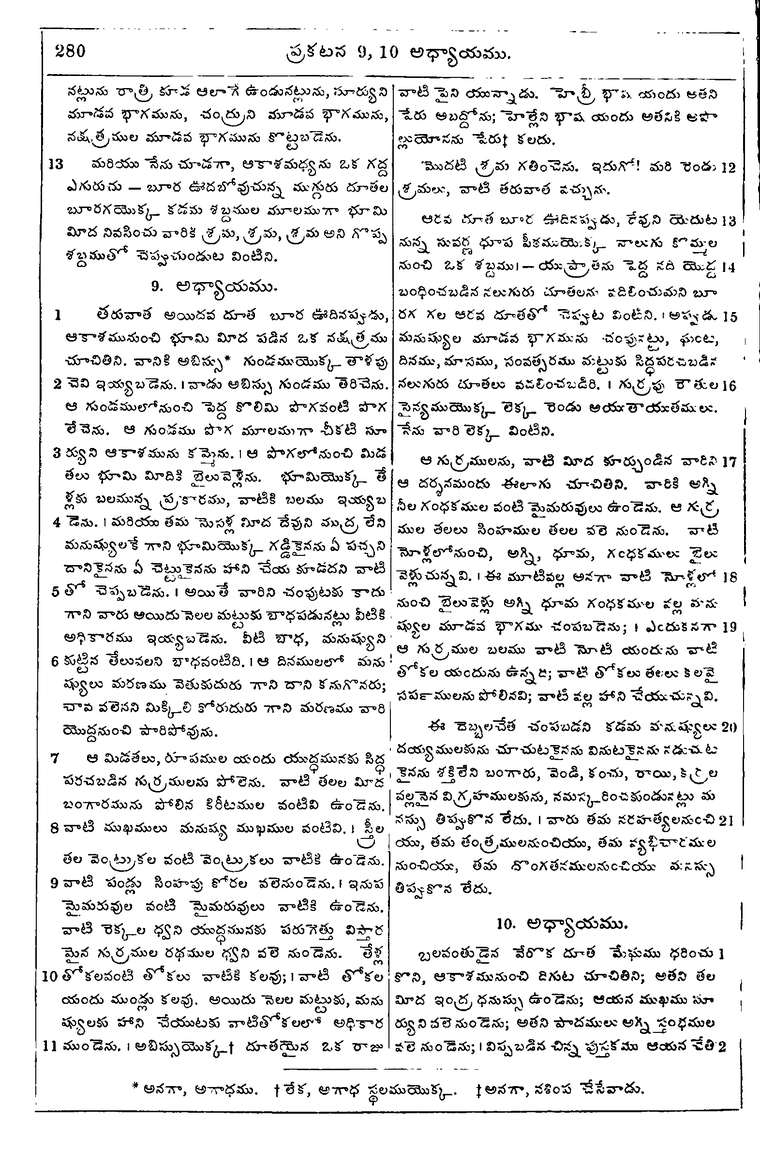 280 ప్రకటన 9, 10 అధ్యాయము.
నట్లును రాత్రి కూడ ఆలాగే ఉండునట్లును, సూర్యుని
మూడవ భాగమును, చంద్రుని మూడవ భాగమును,
నక్షత్రముల మూడవ భాగమును కొట్టబడెను.
13 మరియు నేను చూడగా, ఆకాశమధ్యను ఒక గద్ద
ఎగురుచు — బూర ఊదబోవుచున్న ముగ్గురు దూతల
బూరగయొక్క కడమ శబ్దముల మూలముగా భూమి
మీద నివసించు వారికి శ్రమ, శ్రమ, శ్రమ అని గొప్ప
శబ్దముతో చెప్పుచుండుట వింటిని.
9. అధ్యాయము.
1 తరువాత అయిదవ దూత బూర ఊదినప్పుడు,
ఆకాశమునుంచి భూమి మీద పడిన ఒక నక్షత్రము
చూచితిని. వానికి అబిస్సు* గుండముయొక్క తాళపు
2 చెవి ఇయ్యబడెను. । వాడు అబిస్సు గుండము తెరిచెను.
ఆ గుండములోనుంచి పెద్ద కొలిమి పొగవంటి పొగ
లేచెను. ఆ గుండము పొగ మూలముగా చీకటి సూ
3 ర్యుని ఆకాశమును కమ్మెను. । ఆ పొగలోనుంచి మిడ
తలు భూమి మీదికి బైలువెళ్లెను. భూమియొక్క తే
ళ్లకు బలమున్న ప్రకారము, వాటికి బలము ఇయ్యబ
4 డెను. । మరియు తమ నొసళ్ల మీద దేవుని ముద్ర లేని
మనుష్యులకే గాని భూమియొక్క గడ్డికైనను ఏ పచ్చని
దానికైనను ఏ చెట్టుకైనను హాని చేయ కూడదని వాటి
5 తో చెప్పబడెను. । అయితే వారిని చంపుటకు కాదు
గాని వారు అయిదు నెలల మట్టుకు బాధపడునట్లు వీటికి
అధికారము ఇయ్యబడెను. వీటి బాధ, మనుష్యుని
6 కుట్టిన తేలునలని బాధవంటిది. । ఆ దినములలో మను
ష్యులు మరణము వెతుకుదురు గాని దాని కనుగొనరు;
చావ వలెనని మిక్కిలి కోరుదురు గాని మరణము వారి
యొద్దనుంచి పారిపోవును.
7 ఆ మిడతలు, రూపముల యందు యుద్ధమునకు సిద్ధ
పరచబడిన గుర్రములను పోలెను. వాటి తలల మీద
బంగారమును పోలిన కిరీటముల వంటివి ఉండెను.
8 వాటి ముఖములు మనుష్య ముఖముల వంటివి. । స్త్రీల
తల వెంట్రుకల వంటి వెంట్రుకలు వాటికి ఉండెను.
9 వాటి పండ్లు సింహపు కోరల వలెనుండెను. । ఇనుప
మైమరువుల వంటి మైమరువులు వాటికి ఉండెను.
వాటి రెక్కల ధ్వని యుద్ధమునకు పరుగెత్తు విస్తార
మైన గుర్రముల రథముల ధ్వని వలె నుండెను. తేళ్ల
10 తోకలవంటి తోకలు వాటికి కలవు; । వాటి తోకల
యందు ముండ్లు కలవు. అయిదు నెలల మట్టుకు, మను
ష్యులకు హాని చేయుటకు వాటితోకలలో అధికార
11 ముండెను. । అబిస్సుయొక్క† దూతయైన ఒక రాజు
వాటి పైని యున్నాడు. హెబ్రీ భాష యందు అతని
పేరు అబద్దోను; హెల్లేని భాష యందు అతనికి అపొ
ల్లుయోనను పేరు‡ కలదు.
మొదటి శ్రమ గతించెను. ఇదుగో! మరి రెండు 12
శ్రమలు, వాటి తరువాత వచ్చును.
ఆరవ దూత బూర ఊదినప్పుడు, దేవుని యెదుట 13
నున్న సువర్ణ ధూప పీఠముయొక్క నాలుగు కొమ్ముల
నుంచి ఒక శబ్దము। — యుఫ్రాతను పెద్ద నది యొద్ద 14
బంధించబడిన నలుగురు దూతలను వదిలించుమని బూ
రగ గల ఆరవ దూతతో చెప్పుట వింటిని. । అప్పుడు 15
మనుష్యుల మూడవ భాగమును చంపునట్టు, ఘంట,
దినము, మాసము, సంవత్సరము మట్టుకు సిద్ధపరచబడిన
నలుగురు దూతలు వదిలించబడిరి. । గుర్రపు రౌతుల 16
సైన్యముయొక్క లెక్క రెండు ఆయుతాయుతములు.
నేను వారి లెక్క వింటిని.
ఆ గుర్రములను, వాటి మీద కూర్చుండిన వారిని 17
ఆ దర్శనమందు ఈలాగు చూచితిని. వారికి అగ్ని
నీల గంధకముల వంటి మైమరువులు ఉండెను. ఆ గుర్ర
ముల తలలు సింహముల తలల వలె నుండెను. వాటి
నోళ్లలోనుంచి, అగ్ని, ధూమ, గంధకములు బైలు
వెళ్లుచున్నవి. । ఈ మూటివల్ల అనగా వాటి నోళ్లలో 18
నుంచి బైలువెళ్లు అగ్ని ధూమ గంధకముల వల్ల మను
ష్యుల మూడవ భాగము చంపబడెను; । ఎందుకనగా 19
ఆ గుర్రముల బలము వాటి నోటి యందును వాటి
తోకల యందును ఉన్నది; వాటి తోకలు తలలు కలవై
సర్పములను పోలినవి; వాటి వల్ల హాని చేయుచున్నవి.
ఈ దెబ్బలచేత చంపబడని కడమ మనుష్యులు 20
దయ్యములకును చూచుటకైనను వినుటకైనను నడుచుట
కైనను శక్తిలేని బంగారు, వెండి, కంచు, రాయి, కర్రల
వల్లనైన విగ్రహములకును, నమస్కరించకుండునట్లు మ
నస్సు తిప్పుకొన లేదు. । వారు తమ నరహత్యలనుంచి 21
యు, తమ తంత్రములనుంచియు, తమ వ్యభిచారముల
నుంచియు, తమ దొంగతనములనుంచియు మనస్సు
తిప్పుకొన లేదు.
10. అధ్యాయము.
బలవంతుడైన వేరొక దూత మేఘము ధరించు 1
కొని, ఆకాశమునుంచి దిగుట చూచితిని; అతని తల
మీద ఇంద్ర ధనుస్సు ఉండెను; ఆయన ముఖము సూ
ర్యుని వలె నుండెను; అతని పాదములు అగ్ని స్తంభముల
వలె నుండెను; । విప్పబడిన చిన్న పుస్తకము ఆయన చేతి 2
* అనగా, అగాధము. † లేక, అగాధ స్థలముయొక్క. ‡ అనగా, నశింప చేసేవాడు.